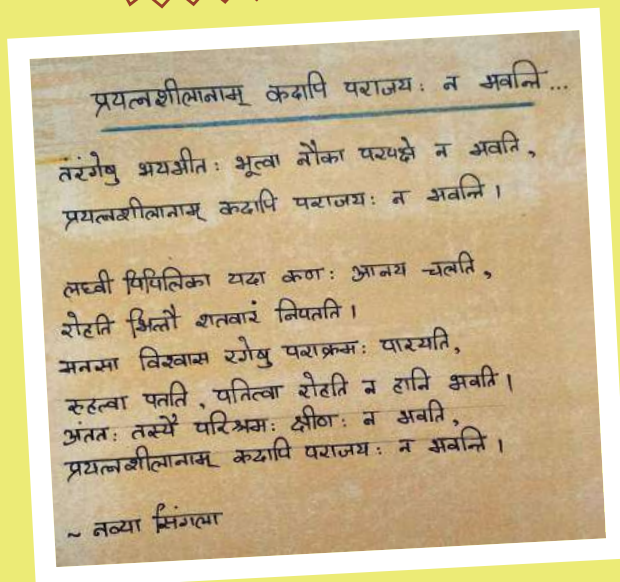 प्रयत्नशीलानाम् कदापि पराजयः न भवन्ति...
तरंगेषु भयभीतः भूत्वा नौका परपक्षे न भवति,
प्रयत्नशीलानाम् कदापि पराजयः न भवन्ति।
लघ्वी पिपिलिका यदा कणः आनय चलति,
रोहति भित्तौ शतवारं निपतति।
मनसा विश्वास रगेषु पराक्रमः पारयति,
रुहत्वा पतति, पतित्वा रोहति न हानि भवति।
अंततः तस्यै परिश्रमः क्षीणः न भवति,
प्रयत्नशीलानाम् कदापि पराजयः न भवन्ति।
~ नव्या सिंगला